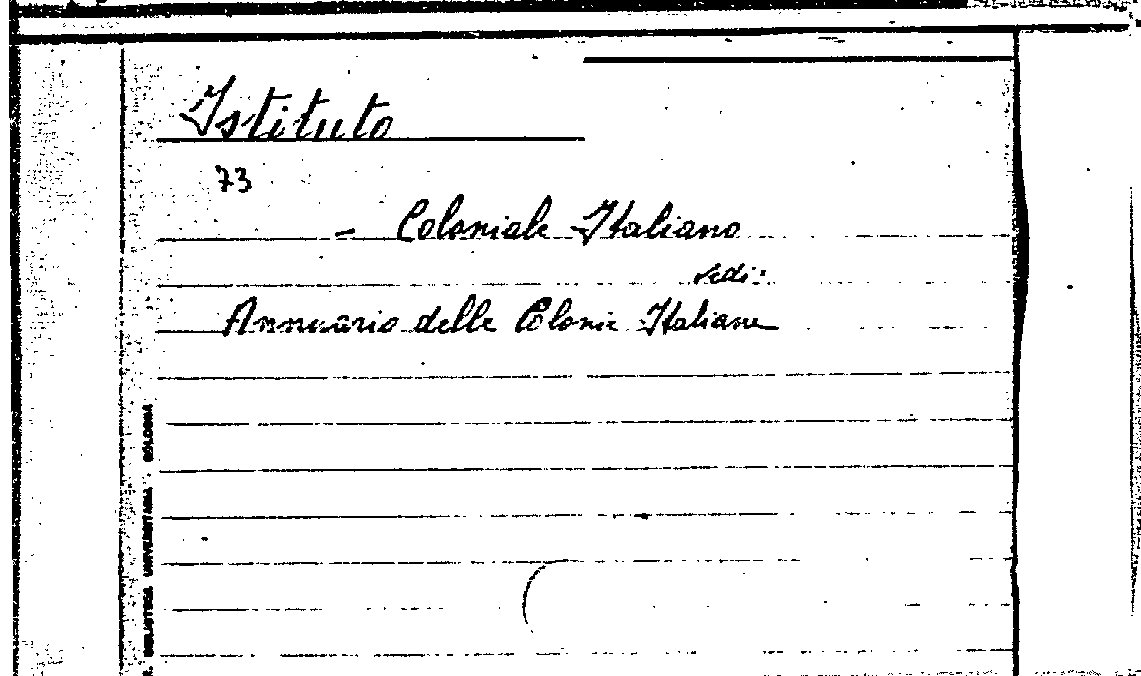 Istituto
73
- Coloniale Italiano
vedi:
Annuario delle Colonie Italiane
R. BIBLIOTECA UNIVERSITARIA - BOLOGNA